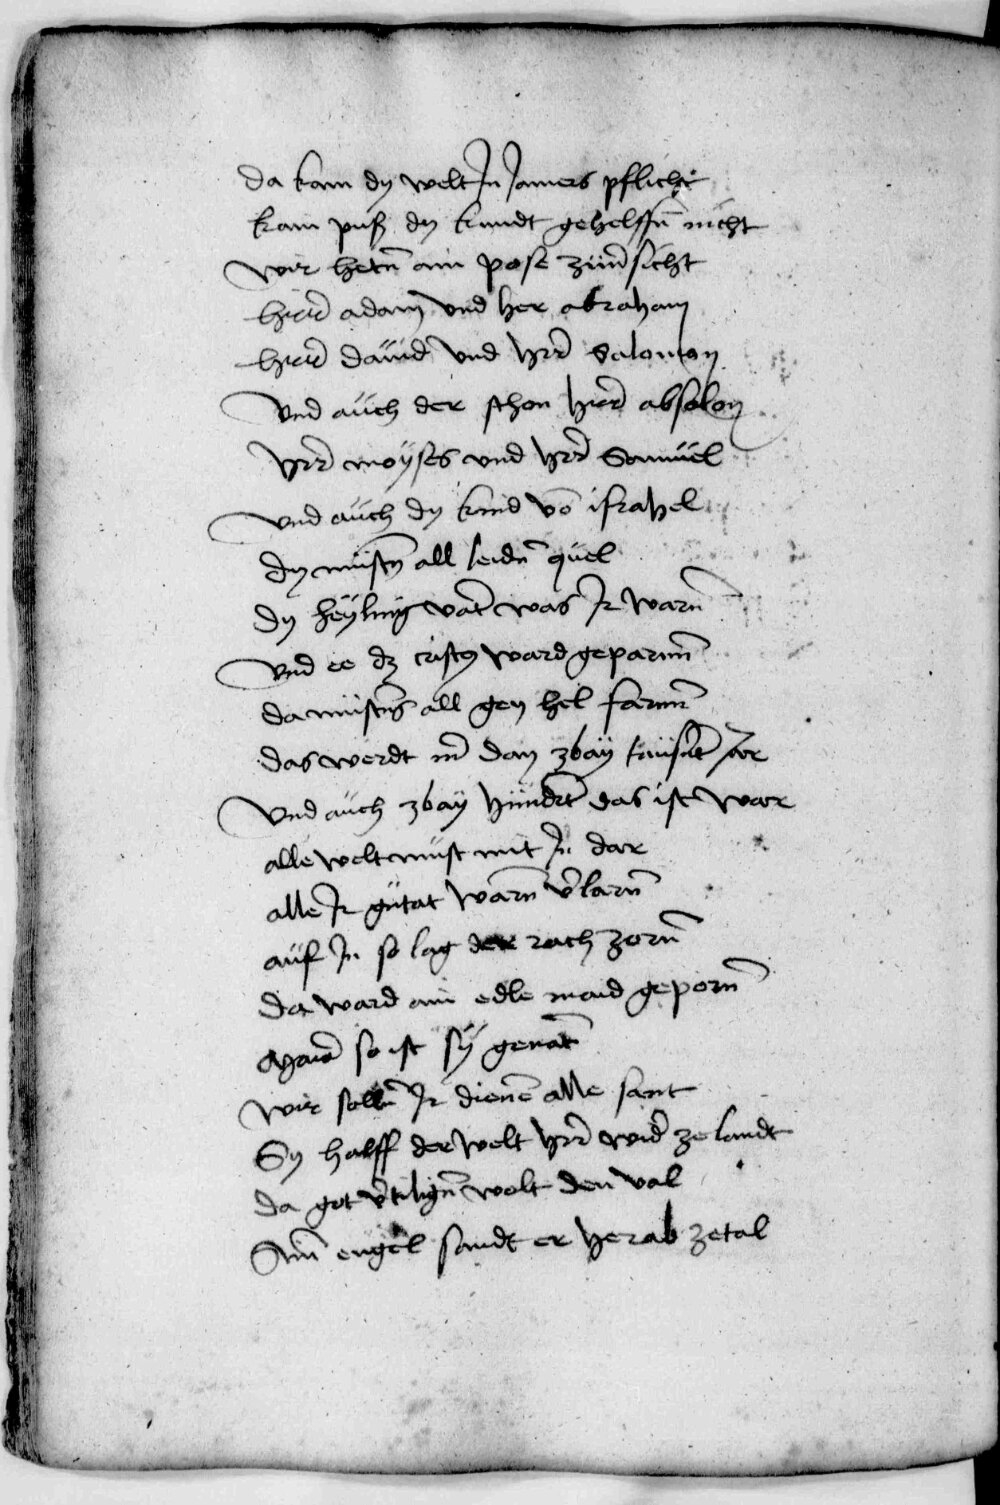 da kam dy welt Jn Jamers pflicht
kain puß dy kundt gehelffn̄ nicht
wir hetn̄ ain pose zuuersicht
herr adam vnd her abraham
herr dauid vnd herr Salomon
Vnd auch der schon herr absolon
herr moyses vnd herr Samuel
vnd auch dy kind võ israhel
dy mustn̄ all leidn̄ quel
dy heyling vatr̄ was Jr warn̄
vnd ee dz cristus ward geparnn̄
da mustns all gen hel farnn̄
das werdt mer dan zbay tausnt Jar
Vnd auch zbay hundrt das ist war
alle welt must mit Jn dar
alle Jr gutat warn̄ v̄larn̄
auf Jn so lag der rach zorn̄
da ward ain edle maid geporn̄
Maria so ist sy genāt
wir solln̄ Jr dienē alle sant
Sy halff der welt herr wider ze landt
da got v̄tilign̄ wolt den val
Ainn̄ engel sandt er herab zetal